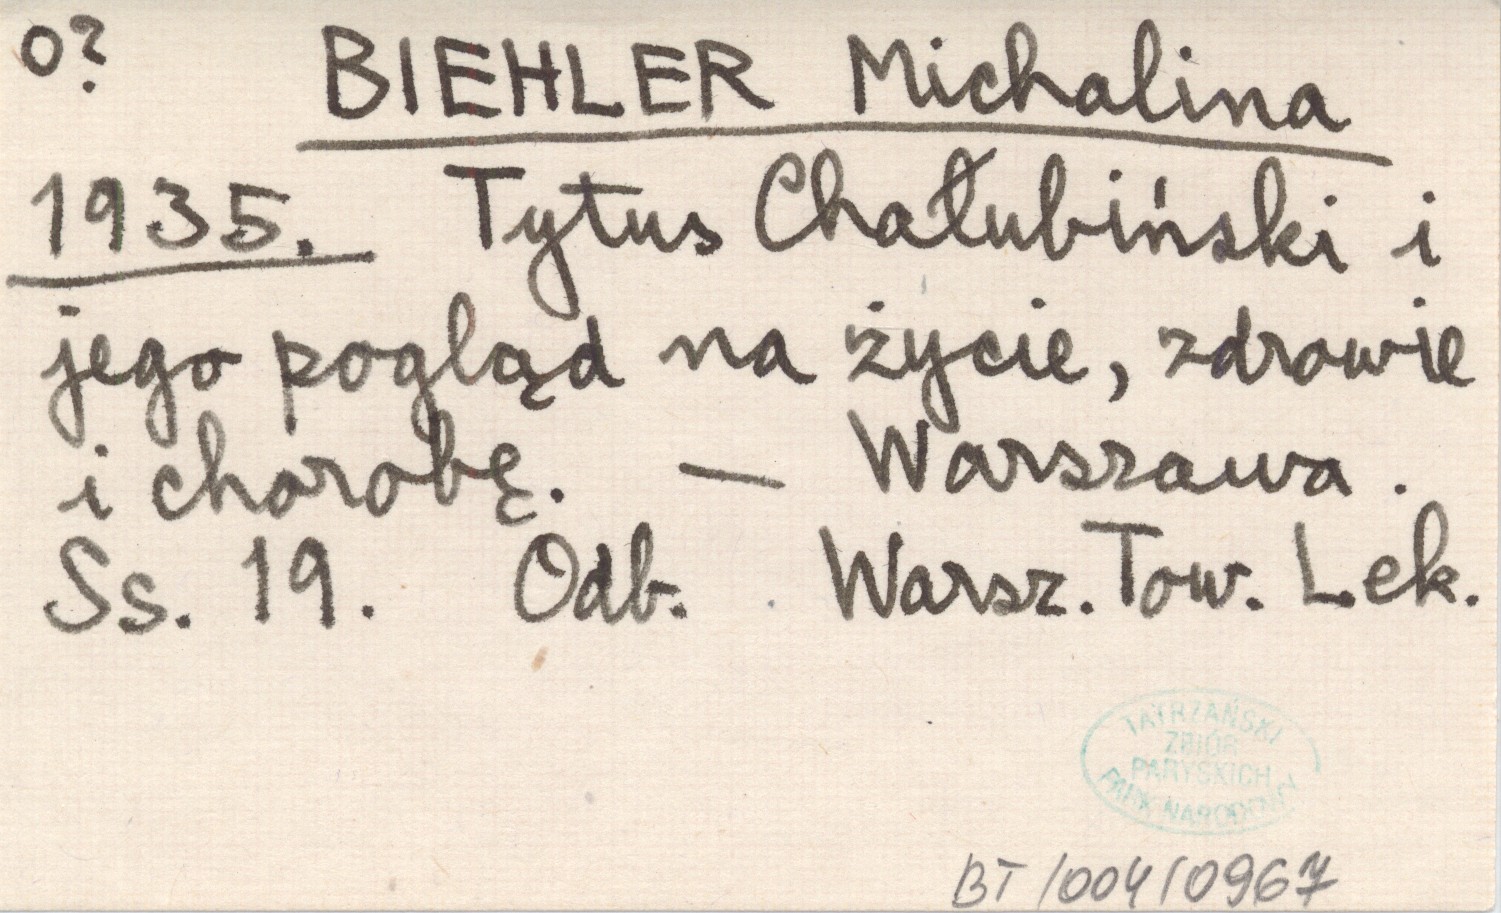 o?
BIEHLER Michalina
1935. Tytus Chałubiński i
jego pogląd na życie, zdrowie
i chorobę. — Warszawa.
Ss. 19. Odb. Warsz. Tow. Lek.
TATRZAŃSKI
ZBIÓR
PARYSKICH
PARK NARODOWY
BT/004/0967